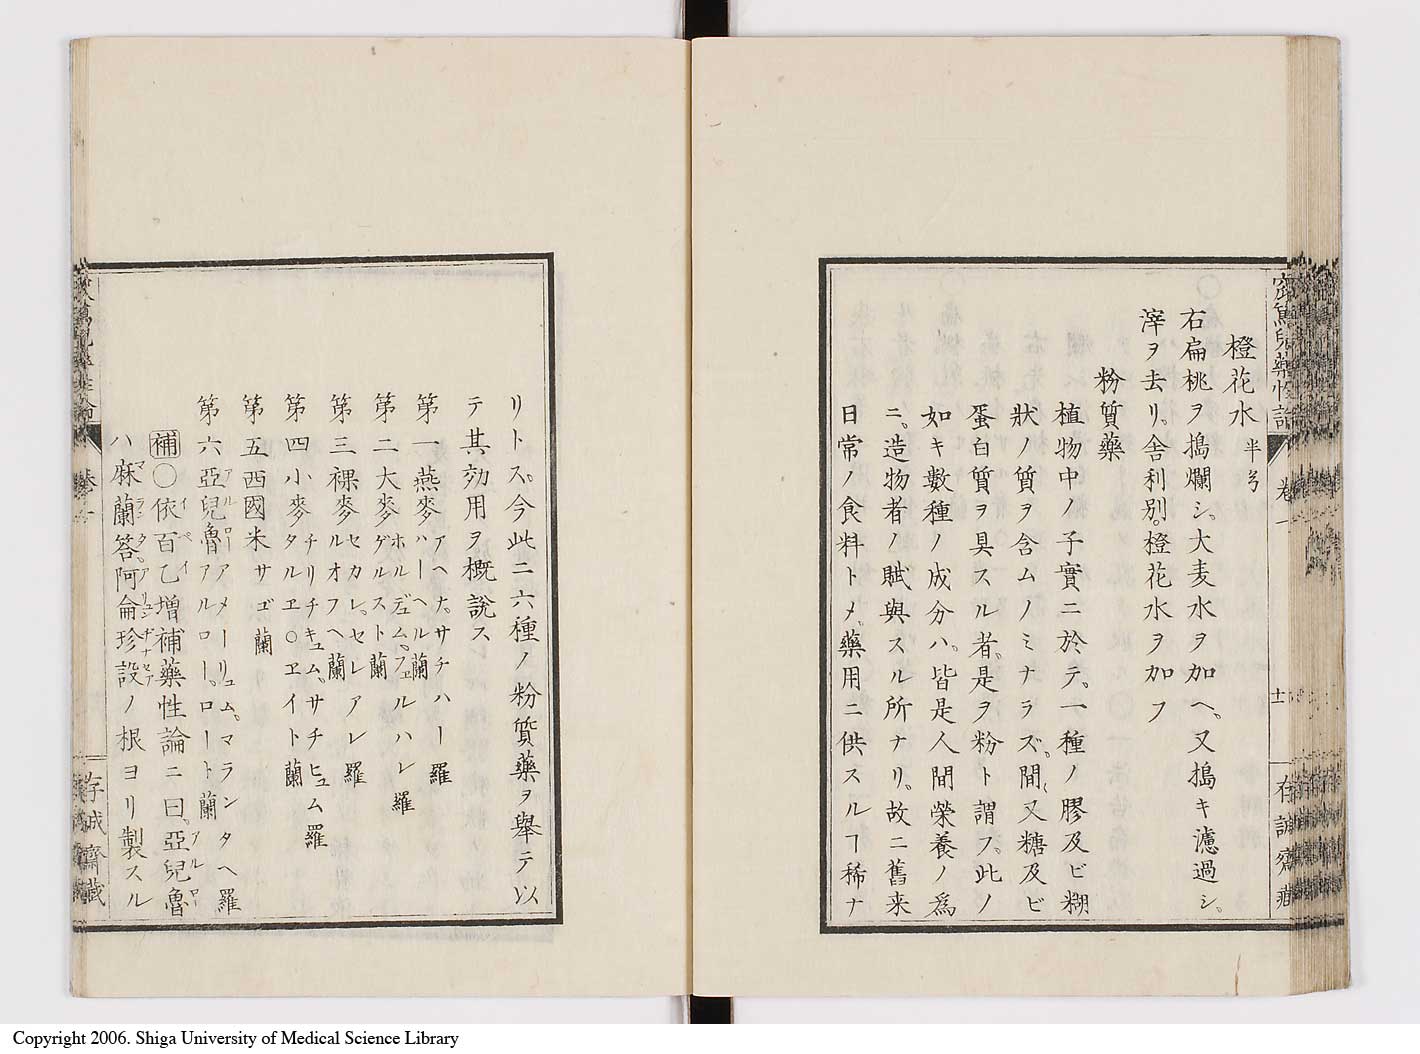 窊篤兒藥性論
卷一
十一
存誠齋藏
橙花水 半弓
右扁桃ヲ搗爛シ。大麦水ヲ加ヘ。又搗キ濾過シ。
滓ヲ去リ。舍利別。橙花水ヲ加フ
粉質藥
植物中ノ子實ニ於テ。一種ノ膠及ビ糊
狀ノ質ヲ含ムノミナラズ。間〻又糖及ビ
蛋白質ヲ具スル者。是ヲ粉ト謂フ。此ノ
如キ數種ノ成分ハ。皆是人間榮養ノ爲
ニ。造物者ノ賦與スル所ナリ。故ニ舊来
日常ノ食料トメ。藥用ニ供スルヿ稀ナ
リトス。今此ニ六種ノ粉質藥ヲ舉テ以
テ其効用ヲ概說ス
第一 燕麥 アヘナ。サチハー 羅 ハーヘル 蘭
第二 大麥 ホルデュム。フェルハレ 羅 ゲルスト 蘭
第三 裸麥 セカレ。セレアレ 羅 ルオフヘ 蘭
第四 小麥 チリチキュム。サチヒュム 羅 タルヱ〇ヱイト 蘭
第五 西國米 サゴ 蘭
第六 亞兒魯 アルロー アメーリュム。マランタヘ 羅 アルロー。ロート 蘭
補〇依百乙增補藥性論ニ曰。亞兒魯 イペイ アルロー
ハ麻蘭答。阿侖珍設ノ根ヨリ製スル マランタ。アリュンヂナセア
存誠齋藏